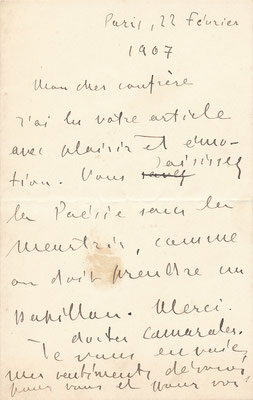 Paris, 22 Février
1907
Mon cher confrère
J'ai lu votre article
avec plaisir et émo-
tion. Vous savez saisissez
la Poésie sans la
meurtrir, comme
on doit prendre un
papillon. Merci.
Je vous envoie,
mes sentiments dévoués
pour vous et pour vos
doctes camarades.